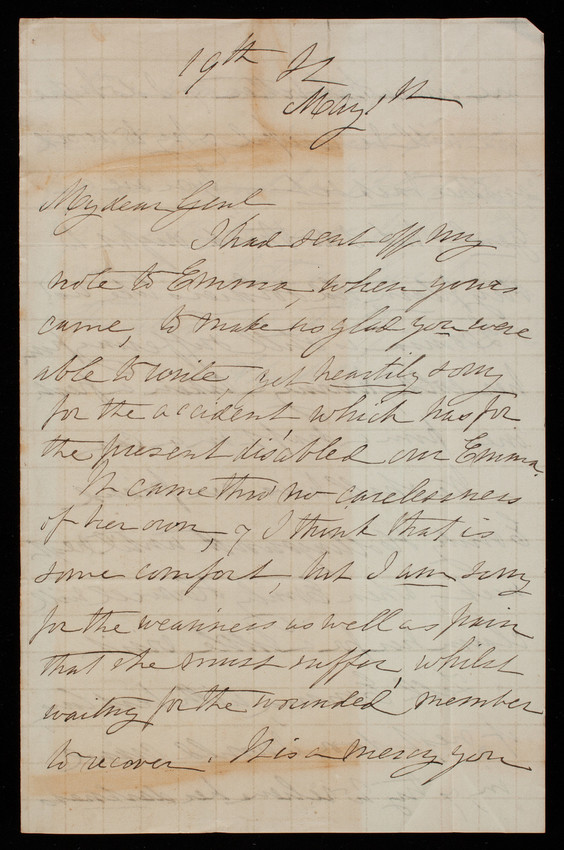 19th St
May 1st
My dear Genl
I had sent off my
note to Emma, when yours
came, to make us glad you were
able to write, yet heartily sorry
for the accident, which has for
the present disabled our Emma.
It came thro' no carelessness
of her own, & I think that is
some comfort, but I am sorry
for the weariness as well as pain
that she must suffer, whilst
waiting for the wounded member
to recover. It is a mercy you